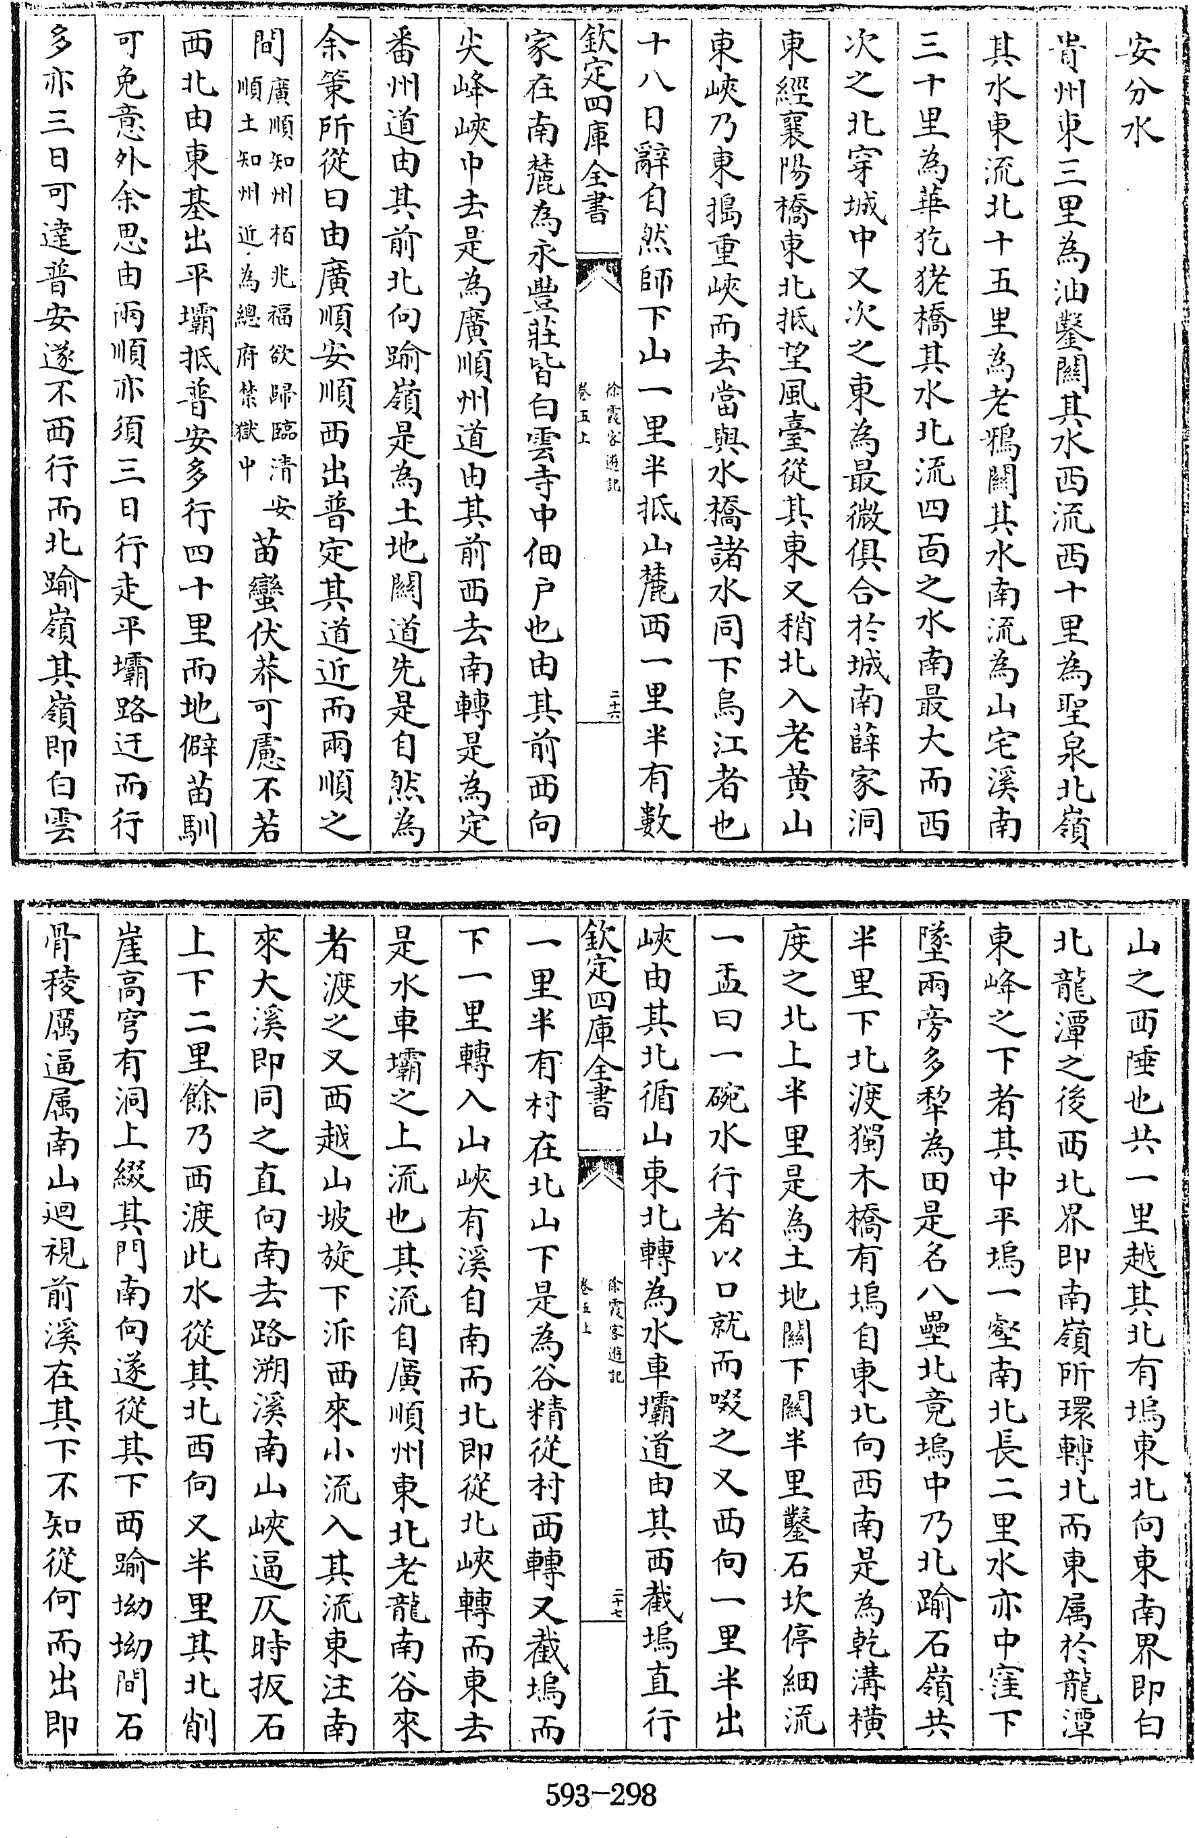 安分水
貴州東三里為油鑿關其水西流西十里為聖泉北嶺
其水東流北十五里為老鴉關其水南流為山宅溪南
三十里為華犵狫橋其水北流四面之水南最大而西
次之北穿城中又次之東為最微俱合於城南薛家洞
東經襄陽橋東北抵望風臺從其東又稍北入老黃山
東峽乃東搗重峽而去當與水橋諸水同下烏江者也
十八日辭自然師下山一里半抵山麓西一里半有數
欽定四庫全書
徐霞客遊記
卷五上
二十六
家在南麓為永豐莊皆白雲寺中佃户也由其前西向
尖峰峽巾去是為廣順州道由其前西去南轉是為定
番州道由其前北向踰嶺是為土地關道先是自然為
余策所從曰由廣順安順西出普定其道近而兩順之
間廣順知州栢兆福欲歸臨清安
順土知州近為總府禁獄中
苗蠻伏莽可慮不若
西北由東基出平壩抵普安多行四十里而地僻苗馴
可免意外余思由兩順亦須三日行走平壩路迂而行
多亦三日可達普安遂不西行而北踰嶺其嶺即白雲
山之西陲也共一里越其北有塢東北向東南界即白
北龍潭之後西北界即南嶺所環轉北而東屬於龍潭
東峰之下者其中平塢一壑南北長二里水亦中窪下
墜兩旁多犂為田是名八壘北竟塢中乃北踰石嶺共
半里下北渡獨木橋有塢自東北向西南是為乾溝橫
度之北上半里是為土地關下關半里鑿石坎停細流
一盂曰一碗水行者以口就而啜之又西向一里半出
峽由其北循山東北轉為水車壩道由其西截塢直行
欽定四庫全書
徐霞客遊記
卷五上
二十七
一里半有村在北山下是為谷精從村西轉又截塢而
下一里轉入山峽有溪自南而北即從北峽轉而東去
是水車壩之上流也其流自廣順州東北老龍南谷來
者渡之又西越山坡旋下泝西來小流入其流東注南
來大溪即同之直向南去路溯溪南山峽逼仄時扳石
上下二里餘乃西渡此水從其北西向又半里其北削
崖高穹有洞上綴其門南向遂從其下西踰坳坳間石
骨稜厲逼屬南山迴視前溪在其下不知從何而出即
593-298